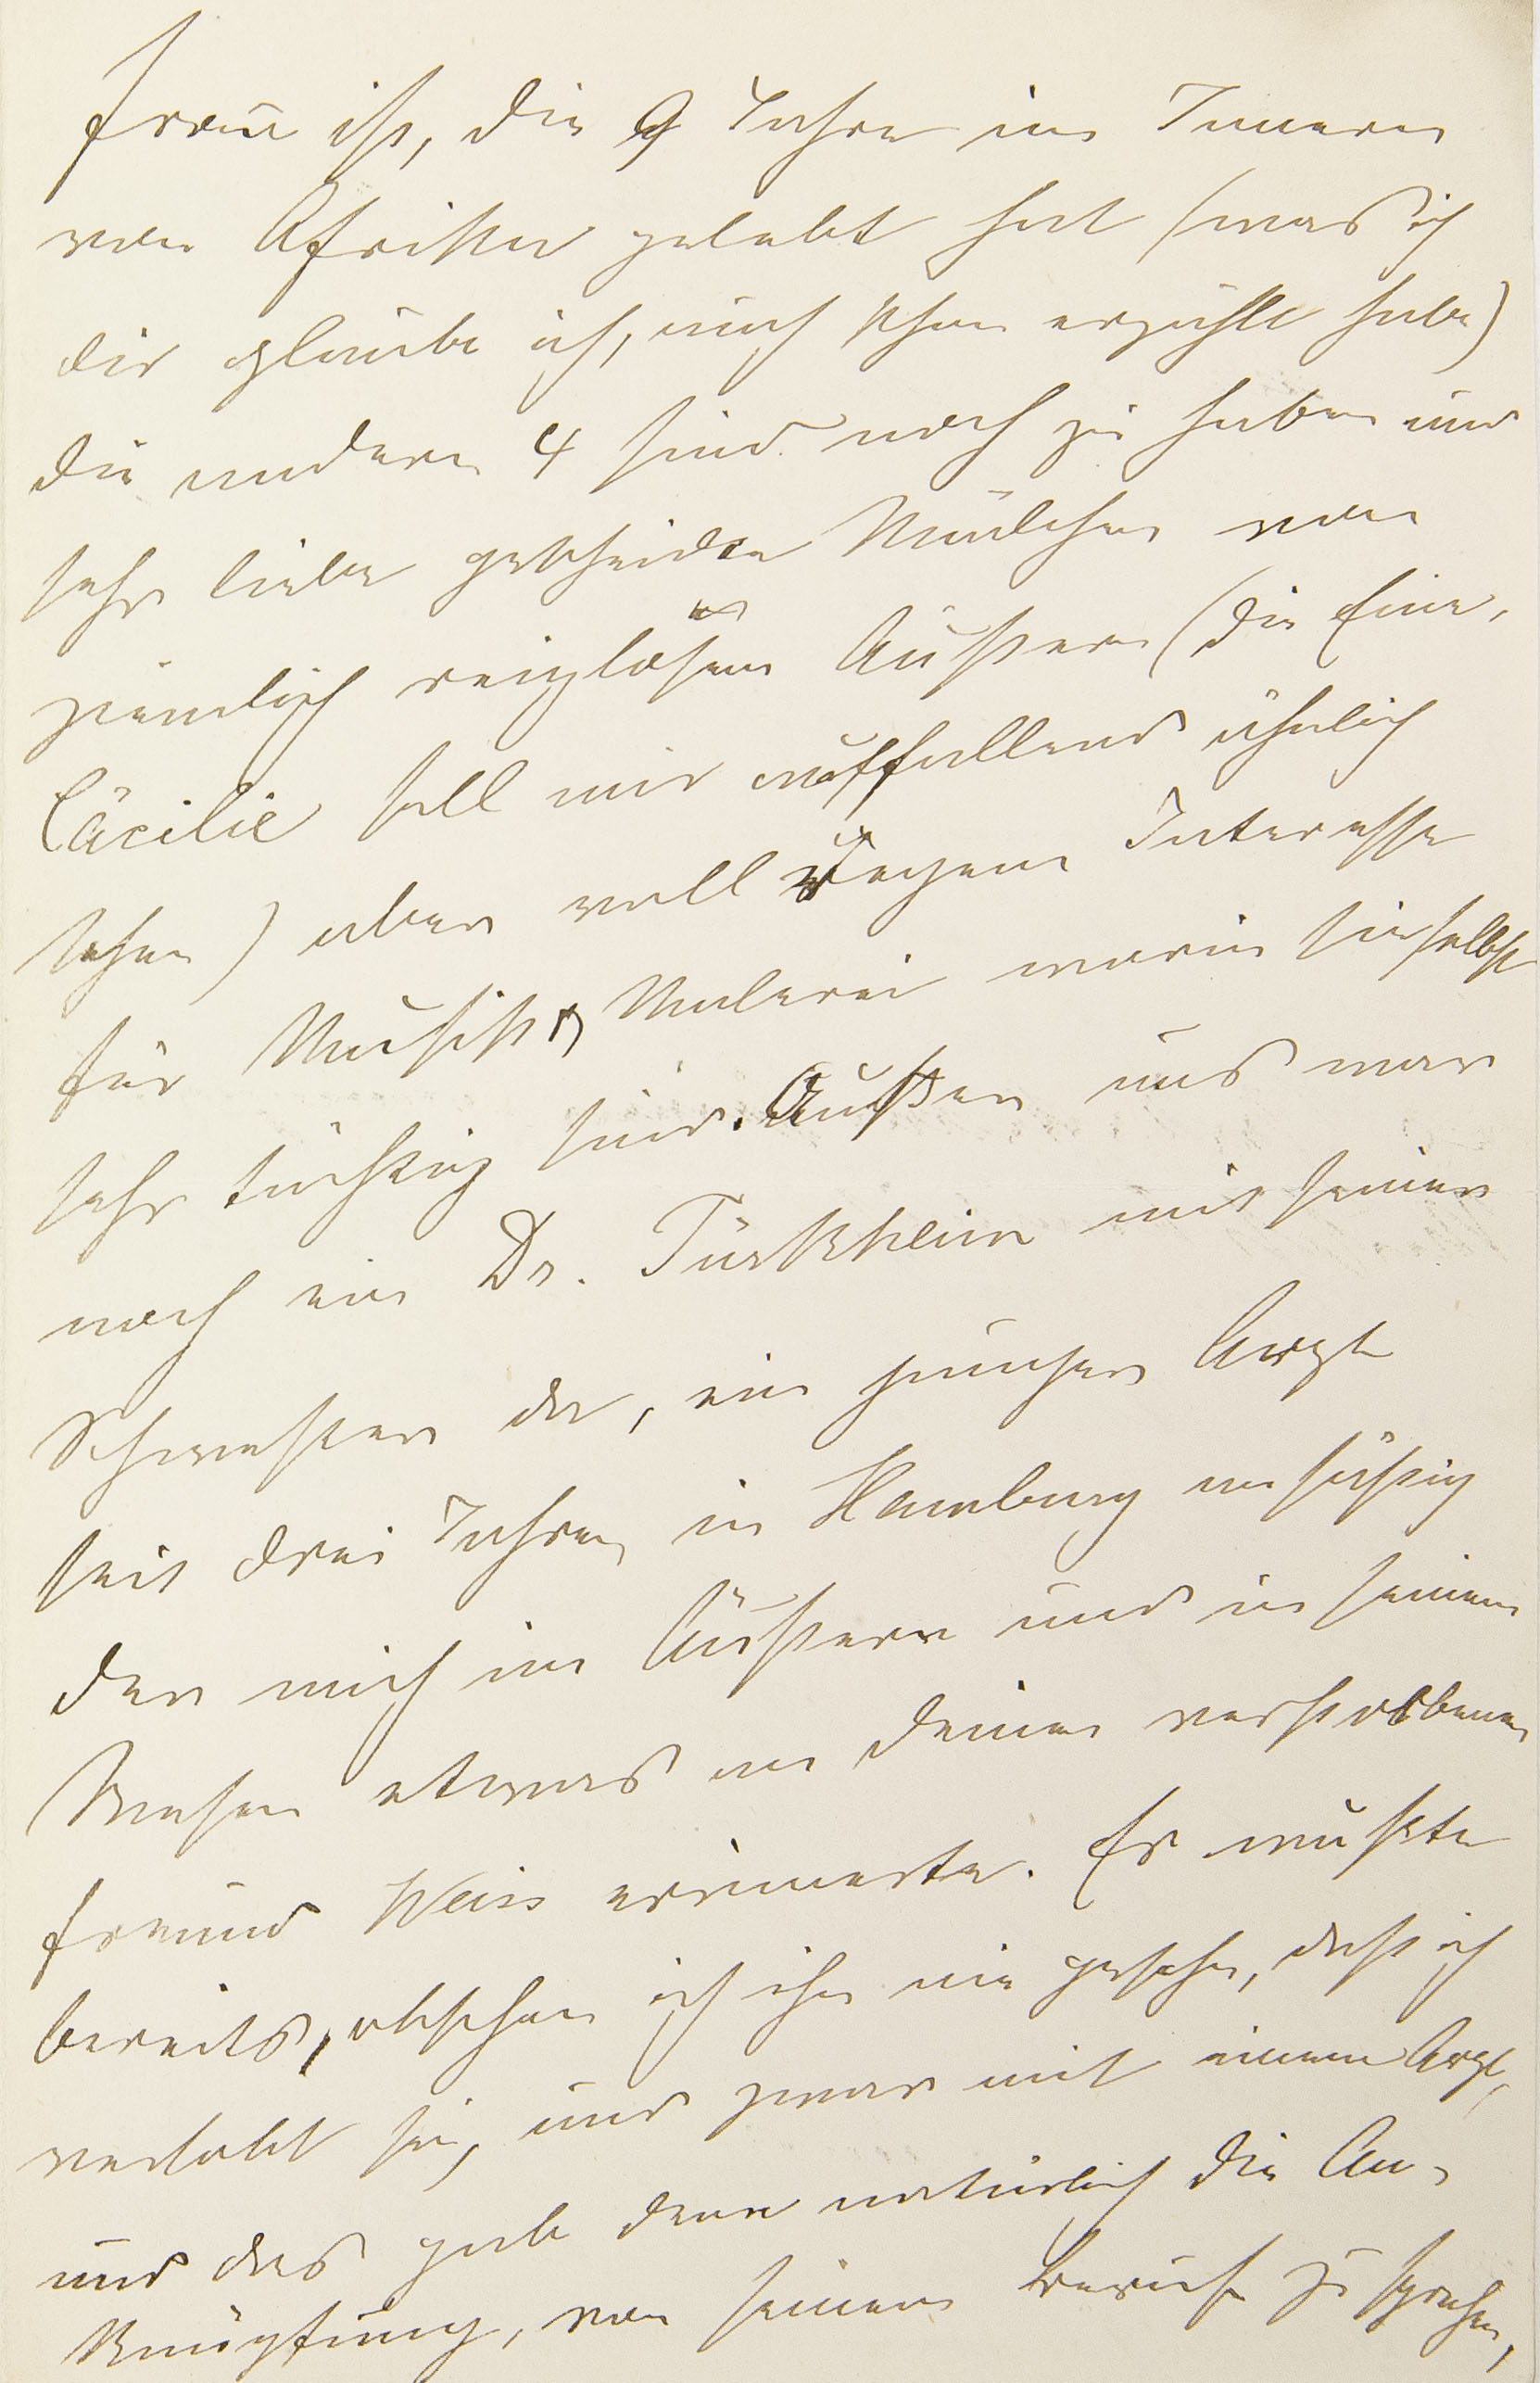 Frau ist, die 9 Jahre im Innern
von Afrika gelebt hat (was ich
dir glaube ich, auch schon erzählt habe)
die andern 4 sind noch zu haben und
sehr liebe gescheidte Mädchen von
ziemlich reizlosem Äußern (die Eine,
Cäcilie soll mir auffallend ähnlich
sehen) aber voll regem Interesse
für Musik & Malerei worin sie selbst
sehr tüchtig sind. Außer uns war
noch ein Dr. Türkheim mit seiner
Schwester da, ein junger Arzt
seit drei Jahren in Hamburg ansäßig
der mich im Äußern und in seinem
Wesen etwas an deinen verstorbenen
Freund Weiss erinnerte. Er wußte
bereits, obschon ich ihn nie gesehen, daß ich
verlobt sei, und zwar mit einem Arzt,
und das gab dann natürlich die An-
knüpfung, von seinem Berufe zu sprechen,